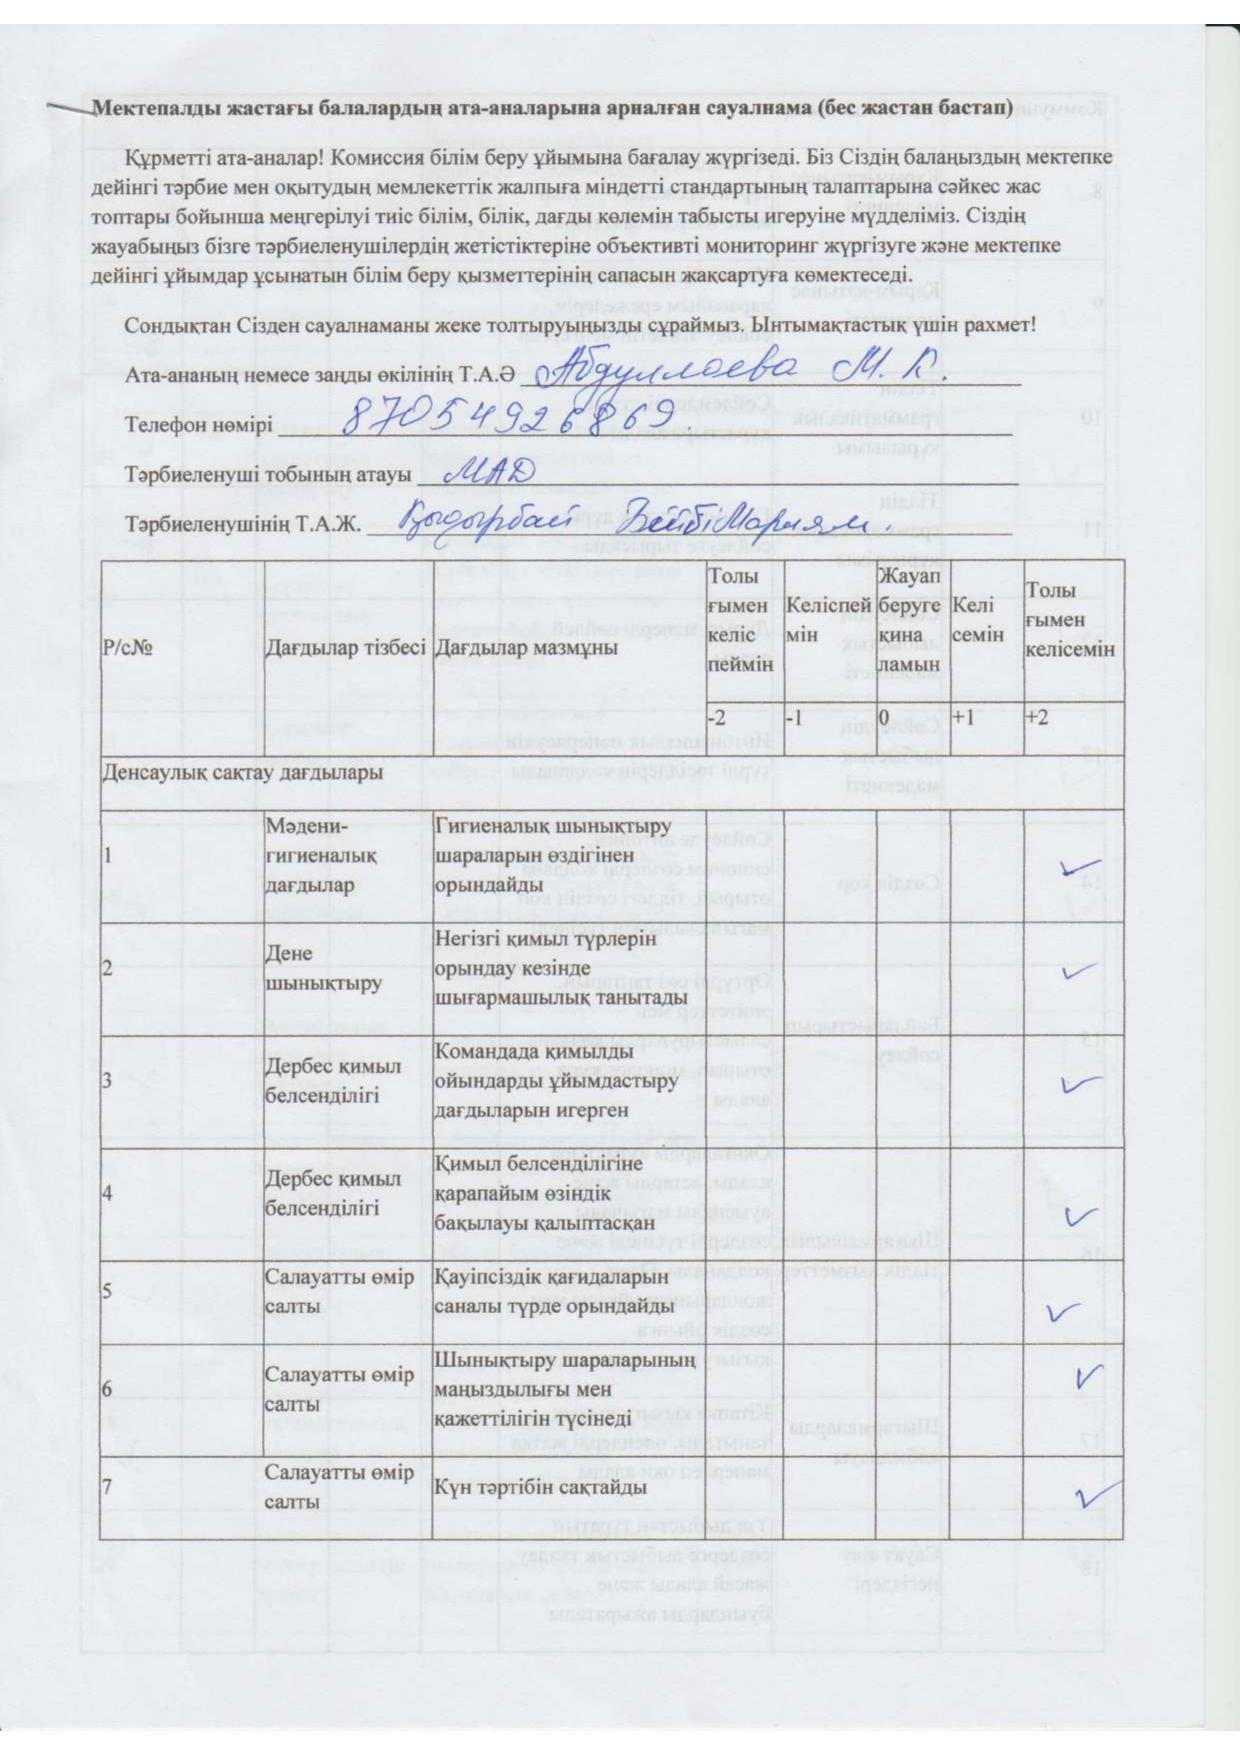 Мектепалды жастағы балалардың ата-аналарына арналған сауалнама (бес жастан бастап)
Құрметті ата-аналар! Комиссия білім беру ұйымына бағалау жүргізеді. Біз Сіздің балаңыздың мектепке
дейінгі тәрбие мен оқытудың мемлекеттік жалпыға міндетті стандартының талаптарына сәйкес жас
топтары бойынша меңгерілуі тиіс білім, білік, дағды көлемін табысты игеруіне мүдделіміз. Сіздің
жауабыңыз бізге тәрбиеленушілердің жетістіктеріне объективті мониторинг жүргізуге және мектепке
дейінгі ұйымдар ұсынатын білім беру қызметтерінің сапасын жақсартуға көмектеседі.
Сондықтан Сізден сауалнаманы жеке толтыруыңызды сұраймыз. Ынтымақтастық үшін рахмет!
Ата-ананың немесе заңды өкілінің Т.А.Ә Абдуллаева М. К.
Телефон нөмірі 87054926869.
Тәрбиеленуші тобының атауы МАД
Тәрбиеленушінің Т.А.Ж. Қыдырбай БейбіМариям.
Р/с№ Дағдылар тізбесі Дағдылар мазмұны
Толы
ғымен
келіс
пеймін
Келіспей
мін
Жауап
беруге
қина
ламын
Келі
семін
Толы
ғымен
келісемін
-2 -1 0 +1 +2
Денсаулық сақтау дағдылары
1
Мәдени-
гигиеналық
дағдылар
Гигиеналық шынықтыру
шараларын өздігінен
орындайды
2
Дене
шынықтыру
Негізгі қимыл түрлерін
орындау кезінде
шығармашылық танытады
3
Дербес қимыл
белсенділігі
Командада қимылды
ойындарды ұйымдастыру
дағдыларын игерген
4
Дербес қимыл
белсенділігі
Қимыл белсенділігіне
қарапайым өзіндік
бақылауы қалыптасқан
5
Салауатты өмір
салты
Қауіпсіздік қағидаларын
саналы түрде орындайды
6
Салауатты өмір
салты
Шынықтыру шараларының
маңыздылығы мен
қажеттілігін түсінеді
7
Салауатты өмір
салты
Күн тәртібін сақтайды